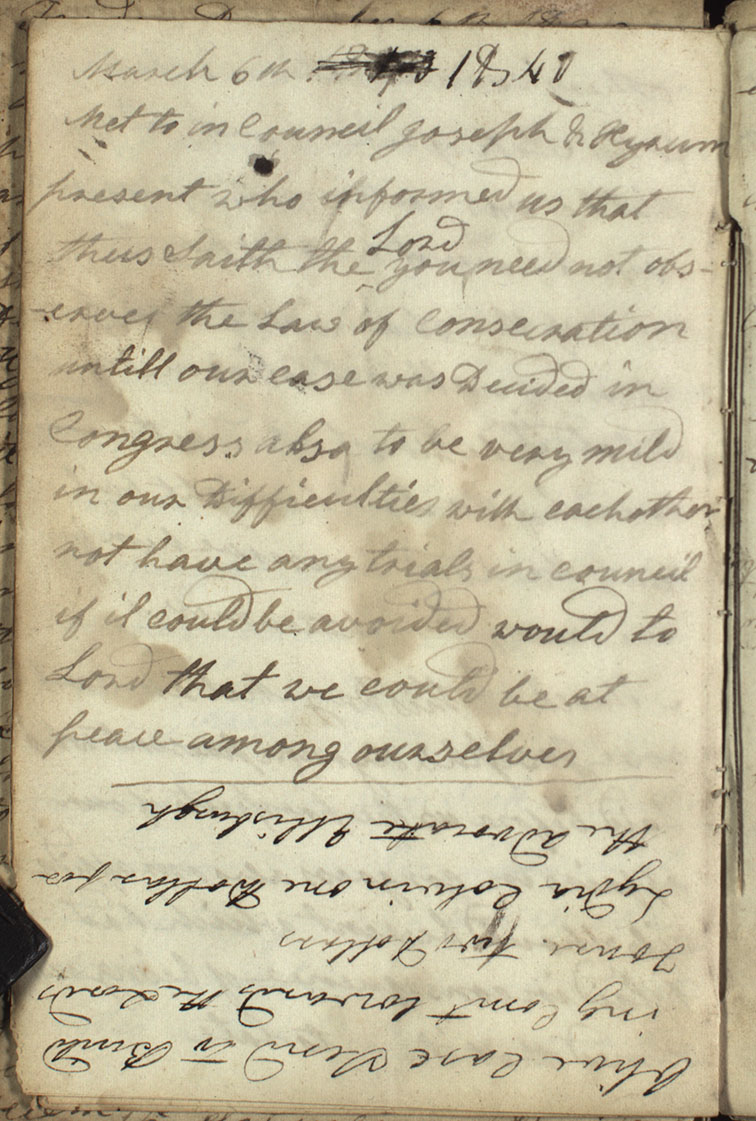 March 6th 1840
Met to in Council Joseph & Hyrum
present who informed us that
thus Saith the Lord you need not obs-
-erve the Law of Consecration
untill our case was Decided in
Congress also to be very mild
in our Difficulties with eachother
not have any trials in council
if it could be avoided would to
Lord that we could be at
peace among ourselves
Olive Case Send to
ing Comt towards the Lords
House two Dollars
Lydia Colvin one Dollar for
the advocate Ellisburgh